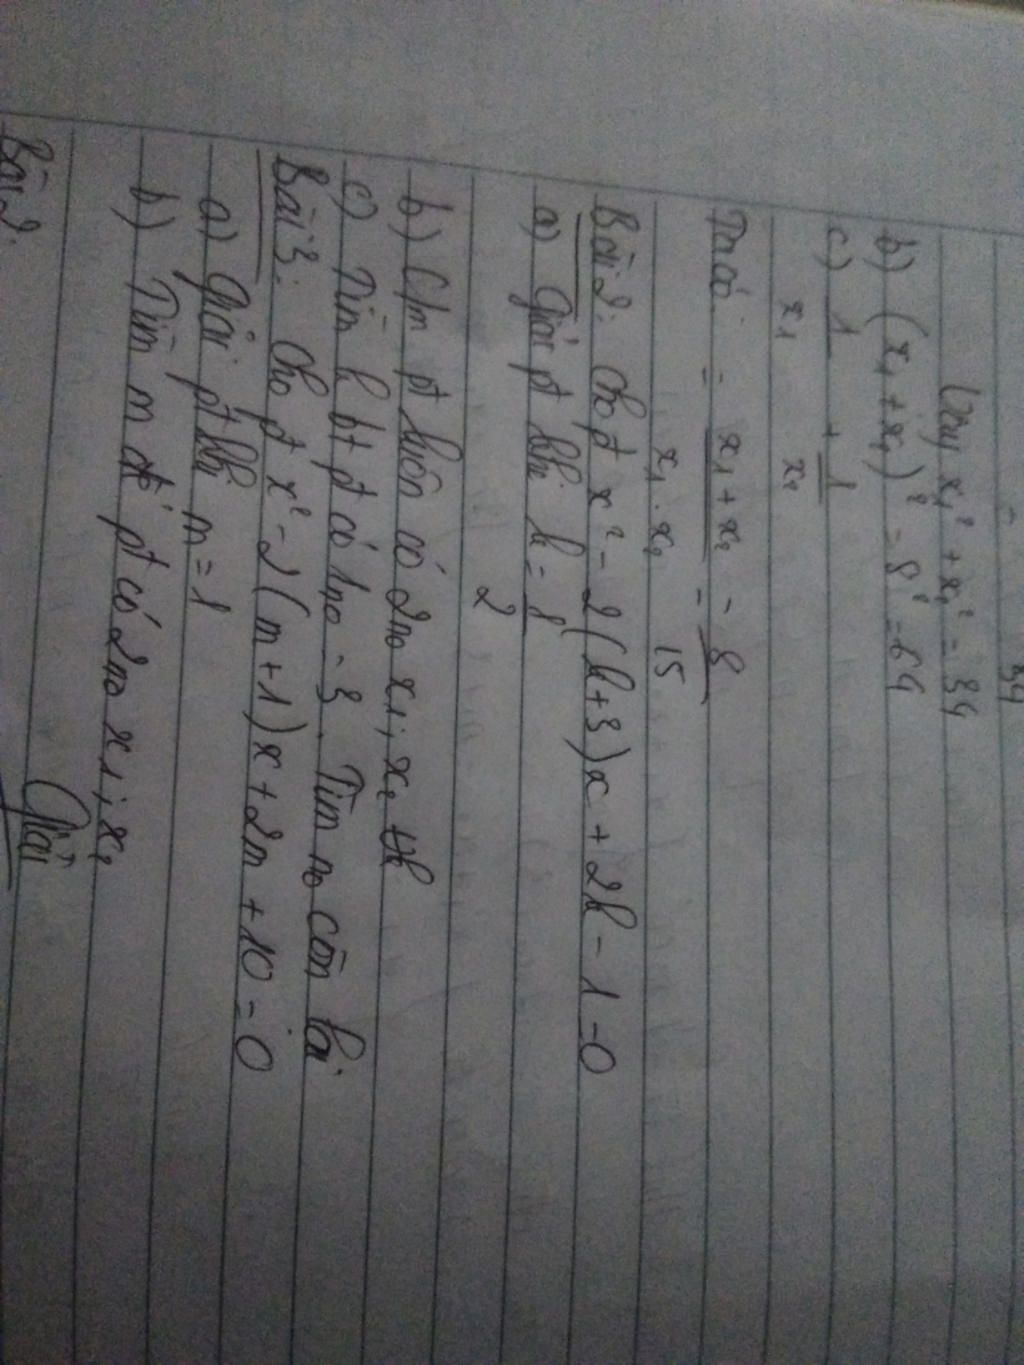 34
Vậy x₁² + x₂² = 34
b) (x₁ + x₂)² = 8² = 64
c) 1/x₁ + 1/x₂
Ta có: = (x₁ + x₂)/(x₁ . x₂) = 8/15
Bài 2: Cho pt x² - 2(k+3)x + 2k - 1 = 0
a) Giải pt khi k = 1/2
b) C/m pt luôn có 2no x₁; x₂
c) Tìm k bt pt có 1no = 3. Tìm no còn lại
Bài 3: Cho pt x² - 2(m+1)x + 2m + 10 = 0
a) Giải pt khi m = 1
b) Tìm m để pt có 2no x₁; x₂
Giải
Bài 2: